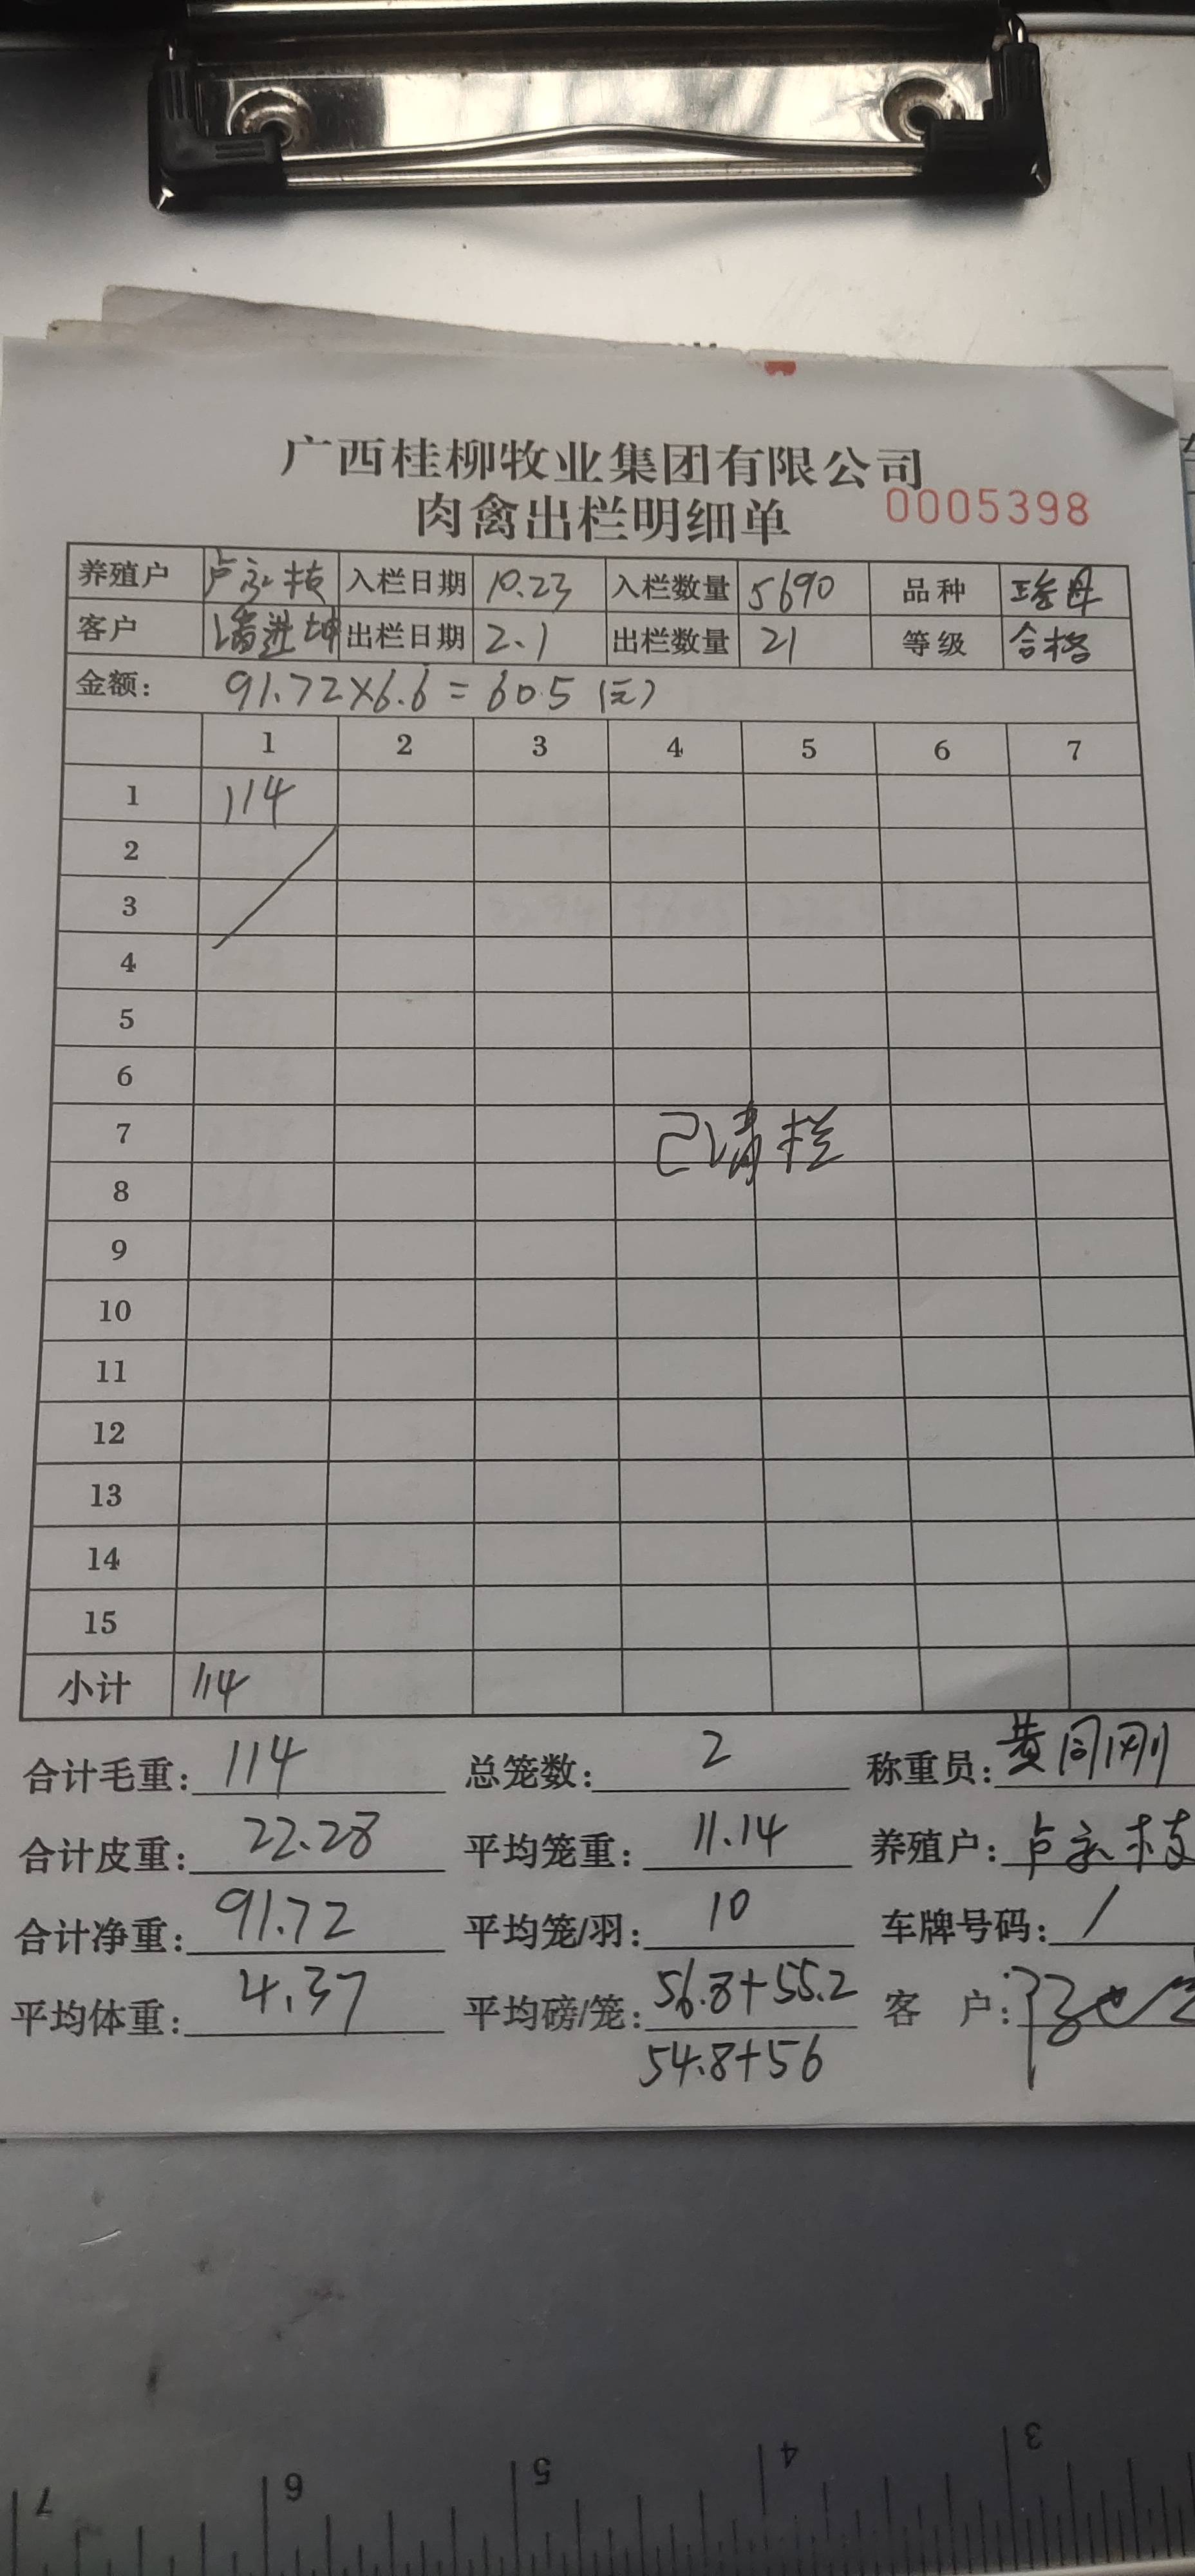 广西桂柳牧业集团有限公司
肉禽出栏明细单 0005398
养殖户 卢永枝 入栏日期 10.23 入栏数量 5690 品种
客户 潘进坤 出栏日期 2.1 出栏数量 21 等级 合格
金额: 91.72×6.6=605(元)
1 2 3 4 5 6 7
1 114
2
3
4
5
6
7 已清栏
8
9
10
11
12
13
14
15
小计 114
合计毛重: 114 总笼数: 2 称重员: 黄同刚
合计皮重: 22.28 平均笼重: 11.14 养殖户: 卢永枝
合计净重: 91.72 平均笼/羽: 10 车牌号码: /
平均体重: 4.37 平均磅/笼: 56.8+55.2 客 户:
54.8+56
7 6 5 4 3